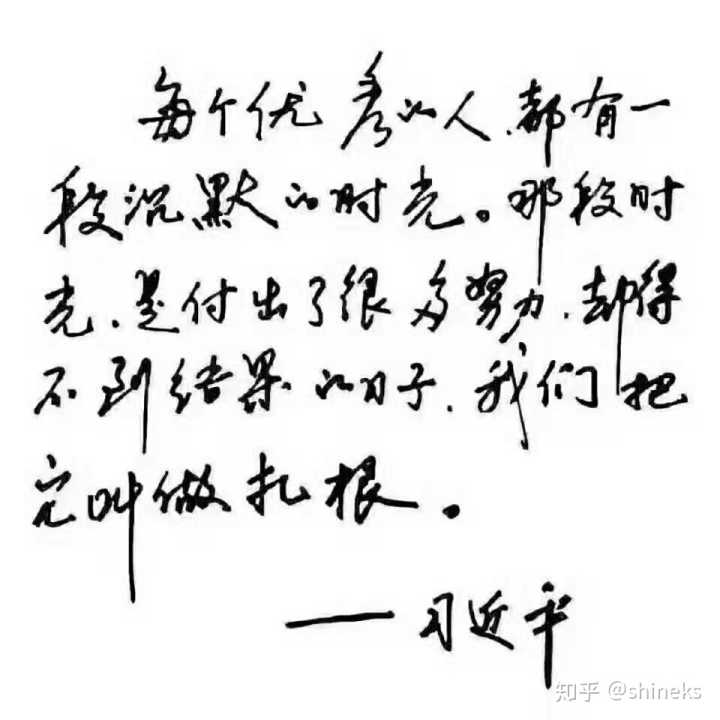 每个优秀的人,都有一
段沉默的时光。那段时
光,是付出了很多努力,却得
不到结果的日子,我们把
它叫做扎根。
——习近平
知乎 @shineks